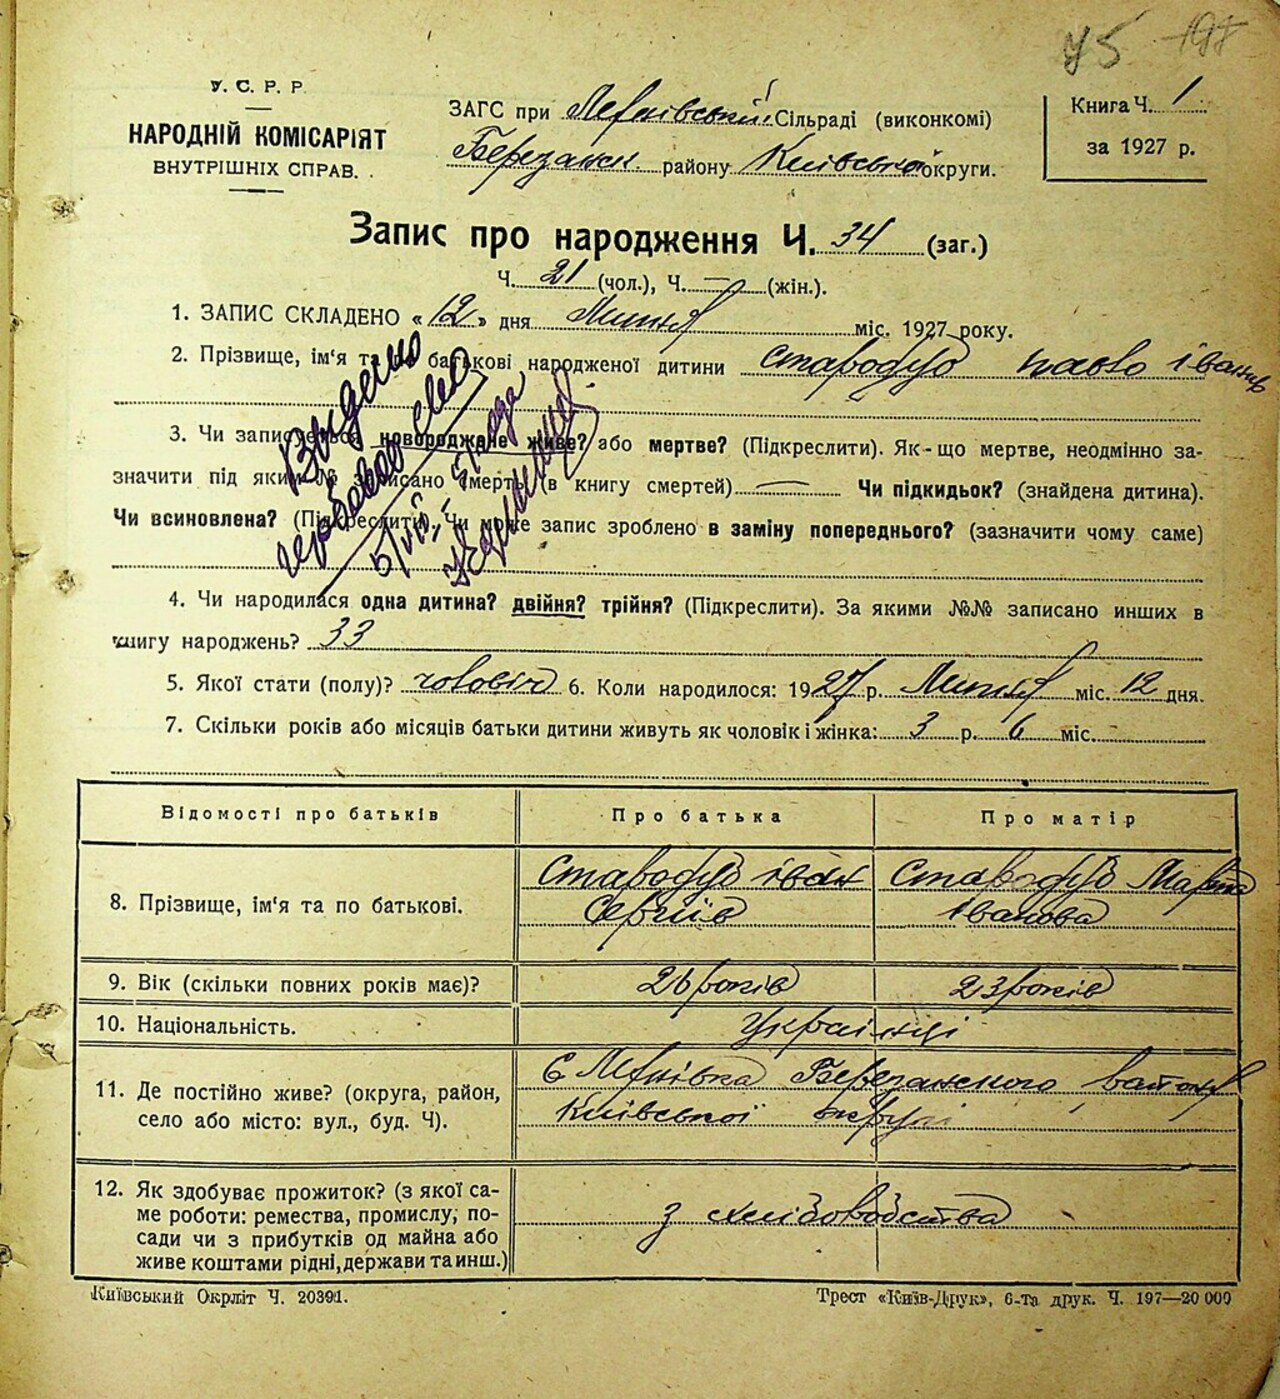 У. С. Р. Р.
НАРОДНІЙ КОМІСАРІЯТ
ВНУТРІШНІХ СПРАВ.
ЗАГС при Лехнівській Сільраді (виконкомі)
Березанськ. району Київської округи.
Книга Ч. 1
за 1927 р.
Запис про народження Ч. 34 (заг.)
Ч. 21 (чол.), Ч. — (жін.).
1. ЗАПИС СКЛАДЕНО «12» дня Липня міс. 1927 року.
2. Прізвище, ім'я та по батькові народженої дитини Стародуб Павло Іванів
3. Чи записується новороджене живе? або мертве? (Підкреслити). Як-що мертве, неодмінно за-
значити під яким № записано смерть (в книгу смертей) — Чи підкидьок? (знайдена дитина).
Чи всиновлена? (Підкреслити). Чи може запис зроблено в заміну попереднього? (зазначити чому саме)
Выдано
5/VIII
4. Чи народилася одна дитина? двійня? трійня? (Підкреслити). За якими №№ записано инших в
книгу народжень? 33
5. Якої стати (полу)? чоловіч 6. Коли народилося: 1927 р. Липня міс. 12 дня.
7. Скільки років або місяців батьки дитини живуть як чоловік і жінка: 3 р. 6 міс.
Відомості про батьків Про батька Про матір
8. Прізвище, ім'я та по батькові. Стародуб Іван Сергіїв Стародуб Марта Іванова
9. Вік (скільки повних років має)? 26 років 23 років
10. Національність. Українці
11. Де постійно живе? (округа, район,
село або місто: вул., буд. Ч).
Березанского
Київської округи
12. Як здобуває прожиток? (з якої са-
ме роботи: ремества, промислу, по-
сади чи з прибутків од майна або
живе коштами рідні, держави та инш.)
з хлібоводства
Київський Окрліт Ч. 20391.
Трест «Київ-Друк», 6-та друк. Ч. 197—20 000